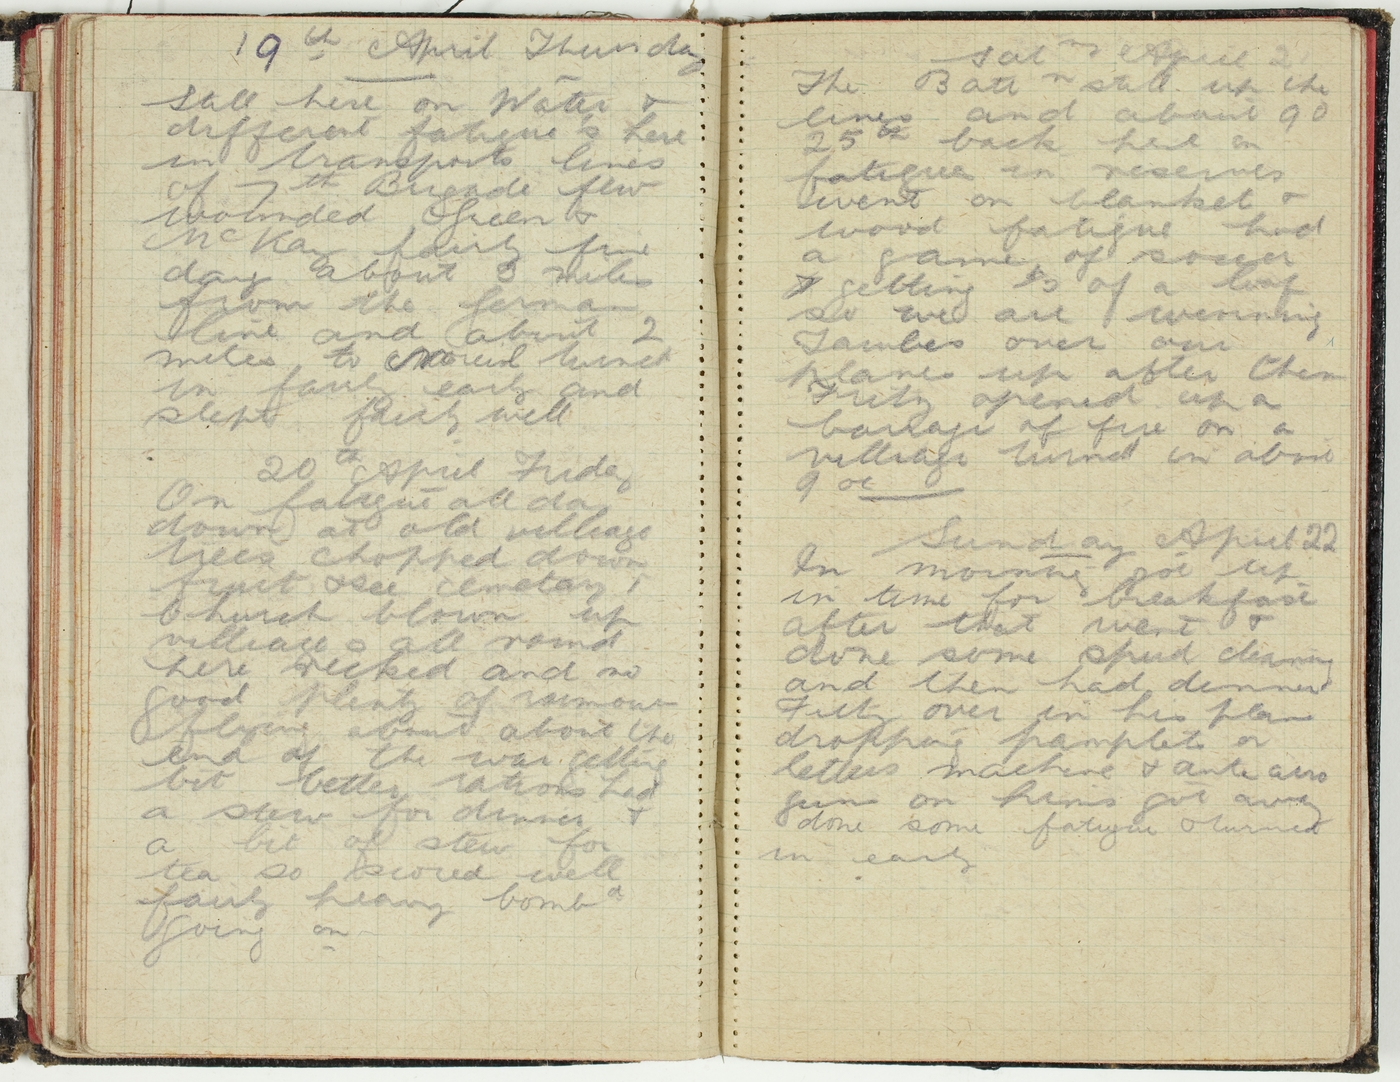 19th April Thursday
Still here on Water &
different fatigue's here
in transports lines
of 7th Brigade few
wounded Green &
McKay fairly fine
day about 3 miles
from the german
line and about 2
miles to turned
in fairly early and
slept fairly well
20th April Friday
On fatigue all day
down at old villeage
trees chopped down
fruit &see cemetary &
Church blown up
villeages all round
here wecked and no
good plenty of rumours
flying about about the
end of the war getting
bit better rations had
a stew for dinner &
a bit of stew for
tea so scored well
fairly heavy bombd
going on
Sat April 21
The Battn still up the
lines and about 90
25th back here on
fatigue in reserves
went on blanket &
wood fatigue had
a game of soccer
& getting 1/3 of a loaf
so we are winning
Taubes over our
planes up after them
Fritz opened up a
barrage of fire on a
villeage turned in about
9 oc
Sunday April 22
In morning got up
in time for breakfast
after that went &
done some spud cleaning
and then had dinner
Fritz over in his plane
dropping pamplets or
letters machine & ante aero
guns on him got away
done some fatigue & turned
in early